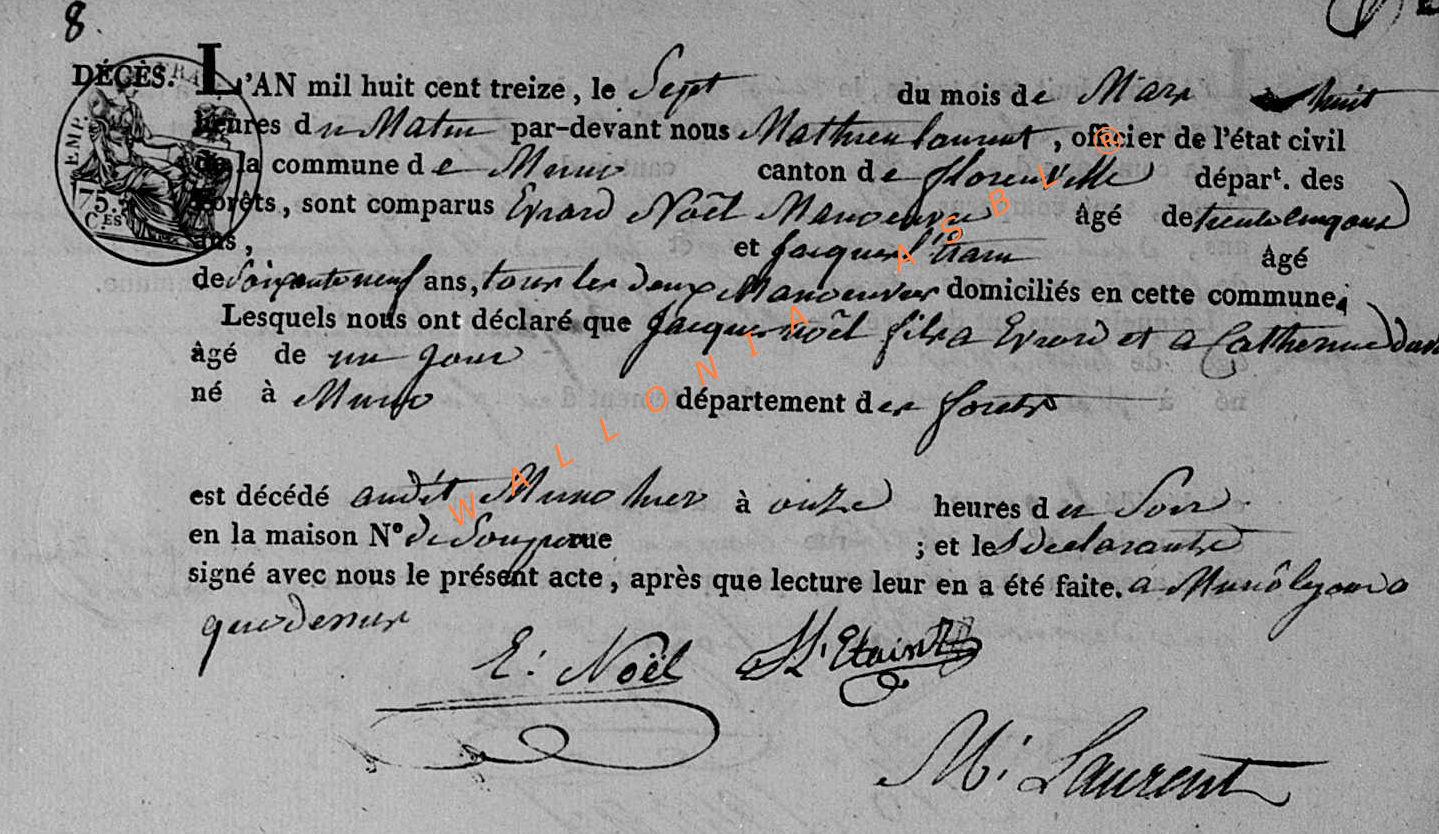 8.
DÉCÈS. L'AN mil huit cent treize, le Sept du mois de Mars à huit
heures du Matin par-devant nous Mathieu Laurent, officier de l'état civil
de la commune de Muno canton de florenville départ. des
Forêts, sont comparus Evrard Noël Manoeuvre âgé de trente cinq ans
ans, et Jacques âgé
de Soixante neuf ans, tous les deux Manoeuvres domiciliés en cette commune.
Lesquels nous ont déclaré que Jacques noël fils a Evrard et a Catherine
âgé de un jour
né à Muno département des forets
est décédé audit Muno hier à onze heures du Soir
en la maison N° rue ; et les declarants
signé avec nous le présent acte, après que lecture leur en a été faite. a Muno
que dessus
E: Noël
M: Laurent
EMP. FRA
75. C.ES
WALLONIA ASBL ®